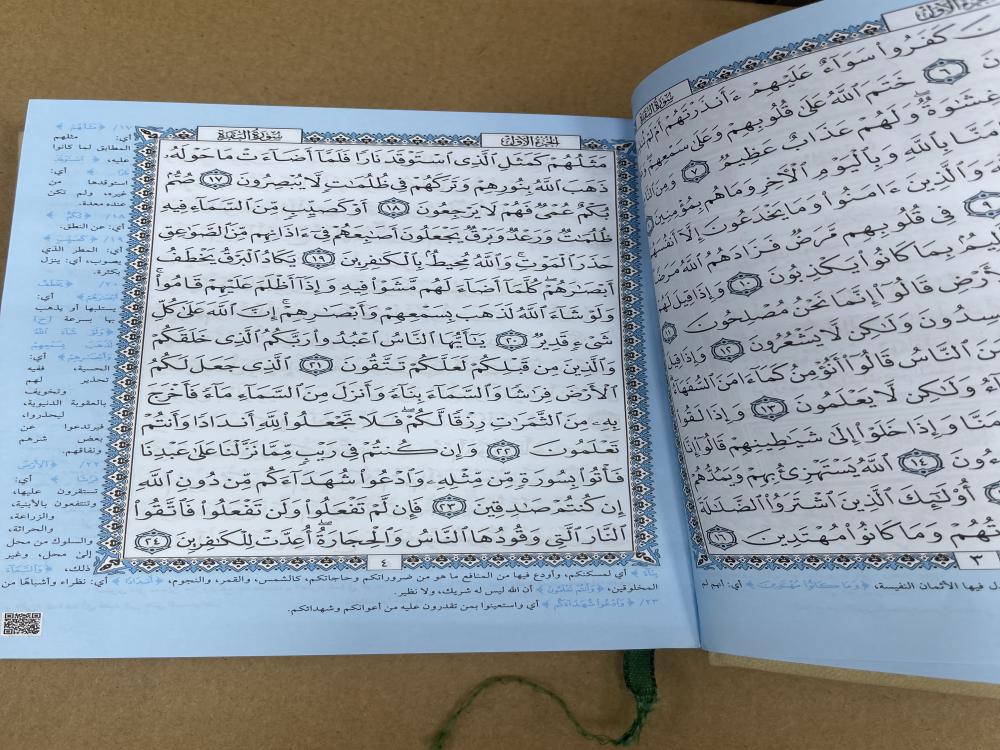 الجزء الأول سورة البقرة
كَفَرُوا۟ سَوَآءٌ عَلَيْهِمْ ءَأَنذَرْتَهُمْ أَمْ لَمْ
٦ خَتَمَ ٱللَّهُ عَلَىٰ قُلُوبِهِمْ وَعَلَىٰ سَمْعِهِمْ
غِشَٰوَةٌ وَلَهُمْ عَذَابٌ عَظِيمٌ ٧ وَمِنَ
بِٱللَّهِ وَبِٱلْيَوْمِ ٱلْءَاخِرِ وَمَا هُم بِمُؤْمِنِينَ
وَٱلَّذِينَ ءَامَنُوا۟ وَمَا يَخْدَعُونَ إِلَّآ
٩ فِى قُلُوبِهِم مَّرَضٌ فَزَادَهُمُ ٱللَّهُ
بِمَا كَانُوا۟ يَكْذِبُونَ ١٠ وَإِذَا قِيلَ لَهُمْ
قَالُوٓا۟ إِنَّمَا نَحْنُ مُصْلِحُونَ ١١
وَلَٰكِن لَّا يَشْعُرُونَ ١٢ وَإِذَا
ٱلنَّاسُ قَالُوٓا۟ أَنُؤْمِنُ كَمَآ ءَامَنَ ٱلسُّفَهَآءُ
وَلَٰكِن لَّا يَعْلَمُونَ ١٣ وَإِذَا لَقُوا۟
وَإِذَا خَلَوْا۟ إِلَىٰ شَيَٰطِينِهِمْ قَالُوٓا۟
١٤ ٱللَّهُ يَسْتَهْزِئُ بِهِمْ وَيَمُدُّهُمْ
أُو۟لَٰٓئِكَ ٱلَّذِينَ ٱشْتَرَوُا۟ ٱلضَّلَٰلَةَ
وَمَا كَانُوا۟ مُهْتَدِينَ ١٦
٣
فيها الأثمان النفيسة، ﴿وَمَا كَانُوا۟ مُهْتَدِينَ﴾ أي:
الجزء الأول سورة البقرة
مَثَلُهُمْ كَمَثَلِ ٱلَّذِى ٱسْتَوْقَدَ نَارًا فَلَمَّآ أَضَآءَتْ مَا حَوْلَهُۥ
ذَهَبَ ٱللَّهُ بِنُورِهِمْ وَتَرَكَهُمْ فِى ظُلُمَٰتٍ لَّا يُبْصِرُونَ ١٧ صُمٌّۢ
بُكْمٌ عُمْىٌ فَهُمْ لَا يَرْجِعُونَ ١٨ أَوْ كَصَيِّبٍ مِّنَ ٱلسَّمَآءِ فِيهِ
ظُلُمَٰتٌ وَرَعْدٌ وَبَرْقٌ يَجْعَلُونَ أَصَٰبِعَهُمْ فِىٓ ءَاذَانِهِم مِّنَ ٱلصَّوَٰعِقِ
حَذَرَ ٱلْمَوْتِ ۚ وَٱللَّهُ مُحِيطٌۢ بِٱلْكَٰفِرِينَ ١٩ يَكَادُ ٱلْبَرْقُ يَخْطَفُ
أَبْصَٰرَهُمْ ۖ كُلَّمَآ أَضَآءَ لَهُم مَّشَوْا۟ فِيهِ وَإِذَآ أَظْلَمَ عَلَيْهِمْ قَامُوا۟ ۚ
وَلَوْ شَآءَ ٱللَّهُ لَذَهَبَ بِسَمْعِهِمْ وَأَبْصَٰرِهِمْ ۚ إِنَّ ٱللَّهَ عَلَىٰ كُلِّ
شَىْءٍ قَدِيرٌ ٢٠ يَٰٓأَيُّهَا ٱلنَّاسُ ٱعْبُدُوا۟ رَبَّكُمُ ٱلَّذِى خَلَقَكُمْ
وَٱلَّذِينَ مِن قَبْلِكُمْ لَعَلَّكُمْ تَتَّقُونَ ٢١ ٱلَّذِى جَعَلَ لَكُمُ
ٱلْأَرْضَ فِرَٰشًا وَٱلسَّمَآءَ بِنَآءً وَأَنزَلَ مِنَ ٱلسَّمَآءِ مَآءً فَأَخْرَجَ
بِهِۦ مِنَ ٱلثَّمَرَٰتِ رِزْقًا لَّكُمْ ۖ فَلَا تَجْعَلُوا۟ لِلَّهِ أَندَادًا وَأَنتُمْ
تَعْلَمُونَ ٢٢ وَإِن كُنتُمْ فِى رَيْبٍ مِّمَّا نَزَّلْنَا عَلَىٰ عَبْدِنَا
فَأْتُوا۟ بِسُورَةٍ مِّن مِّثْلِهِۦ وَٱدْعُوا۟ شُهَدَآءَكُم مِّن دُونِ ٱللَّهِ
إِن كُنتُمْ صَٰدِقِينَ ٢٣ فَإِن لَّمْ تَفْعَلُوا۟ وَلَن تَفْعَلُوا۟ فَٱتَّقُوا۟
ٱلنَّارَ ٱلَّتِى وَقُودُهَا ٱلنَّاسُ وَٱلْحِجَارَةُ ۖ أُعِدَّتْ لِلْكَٰفِرِينَ ٢٤
٤
١٧/ ﴿مَثَلُهُمْ﴾
أي: مثلهم
المطابق لما كانوا
عليه، ﴿ٱسْتَوْقَدَ
نَارًا﴾ أي:
استوقدها من
غيره، ولم تكن
عنده معدة.
١٨/ ﴿بُكْمٌ﴾
أي: عن النطق.
١٩/ ﴿كَصَيِّبٍ﴾
أي: المطر الذي
يصوب، أي: ينزل
بكثرة.
٢٠/ ﴿يَخْطَفُ
أَبْصَٰرَهُمْ﴾ أي:
يستلبها أو يذهب
بها بسرعة [ج]
﴿وَلَوْ شَآءَ ٱللَّهُ
لَذَهَبَ بِسَمْعِهِمْ
وَأَبْصَٰرِهِمْ﴾ أي:
الحسية، ففيه
تحذير لهم
وتخويف
بالعقوبة الدنيوية،
ليحذروا،
فيرتدعوا عن
بعض شرهم
ونفاقهم.
٢٢/ ﴿ٱلْأَرْضَ
فِرَٰشًا﴾ أي:
تستقرون عليها،
وتنتفعون بالأبنية،
والزراعة،
والحراثة،
والسلوك من محل
إلى محل، وغير
ذلك، ﴿وَٱلسَّمَآءَ
بِنَآءً﴾ أي لمسكنكم، وأودع فيها من المنافع ما هو من ضروراتكم وحاجاتكم، كالشمس، والقمر، والنجوم، ﴿أَندَادًا﴾ أي: نظراء وأشباها من
المخلوقين، ﴿وَأَنتُمْ تَعْلَمُونَ﴾ أن الله ليس له شريك، ولا نظير.
٢٣/ ﴿وَٱدْعُوا۟ شُهَدَآءَكُم﴾ أي واستعينوا بمن تقدرون عليه من أعوانكم وشهدائكم.